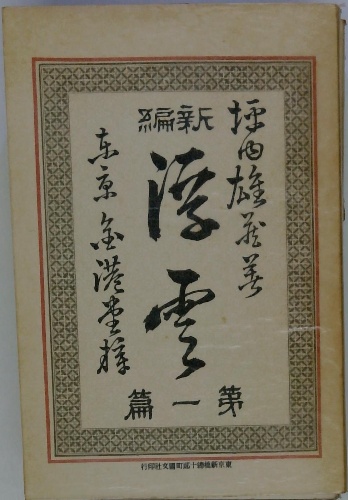 坪内雄蔵著
新編
浮雲
第一篇
東京 金港堂梓
東京新橋十郎町國文社印行